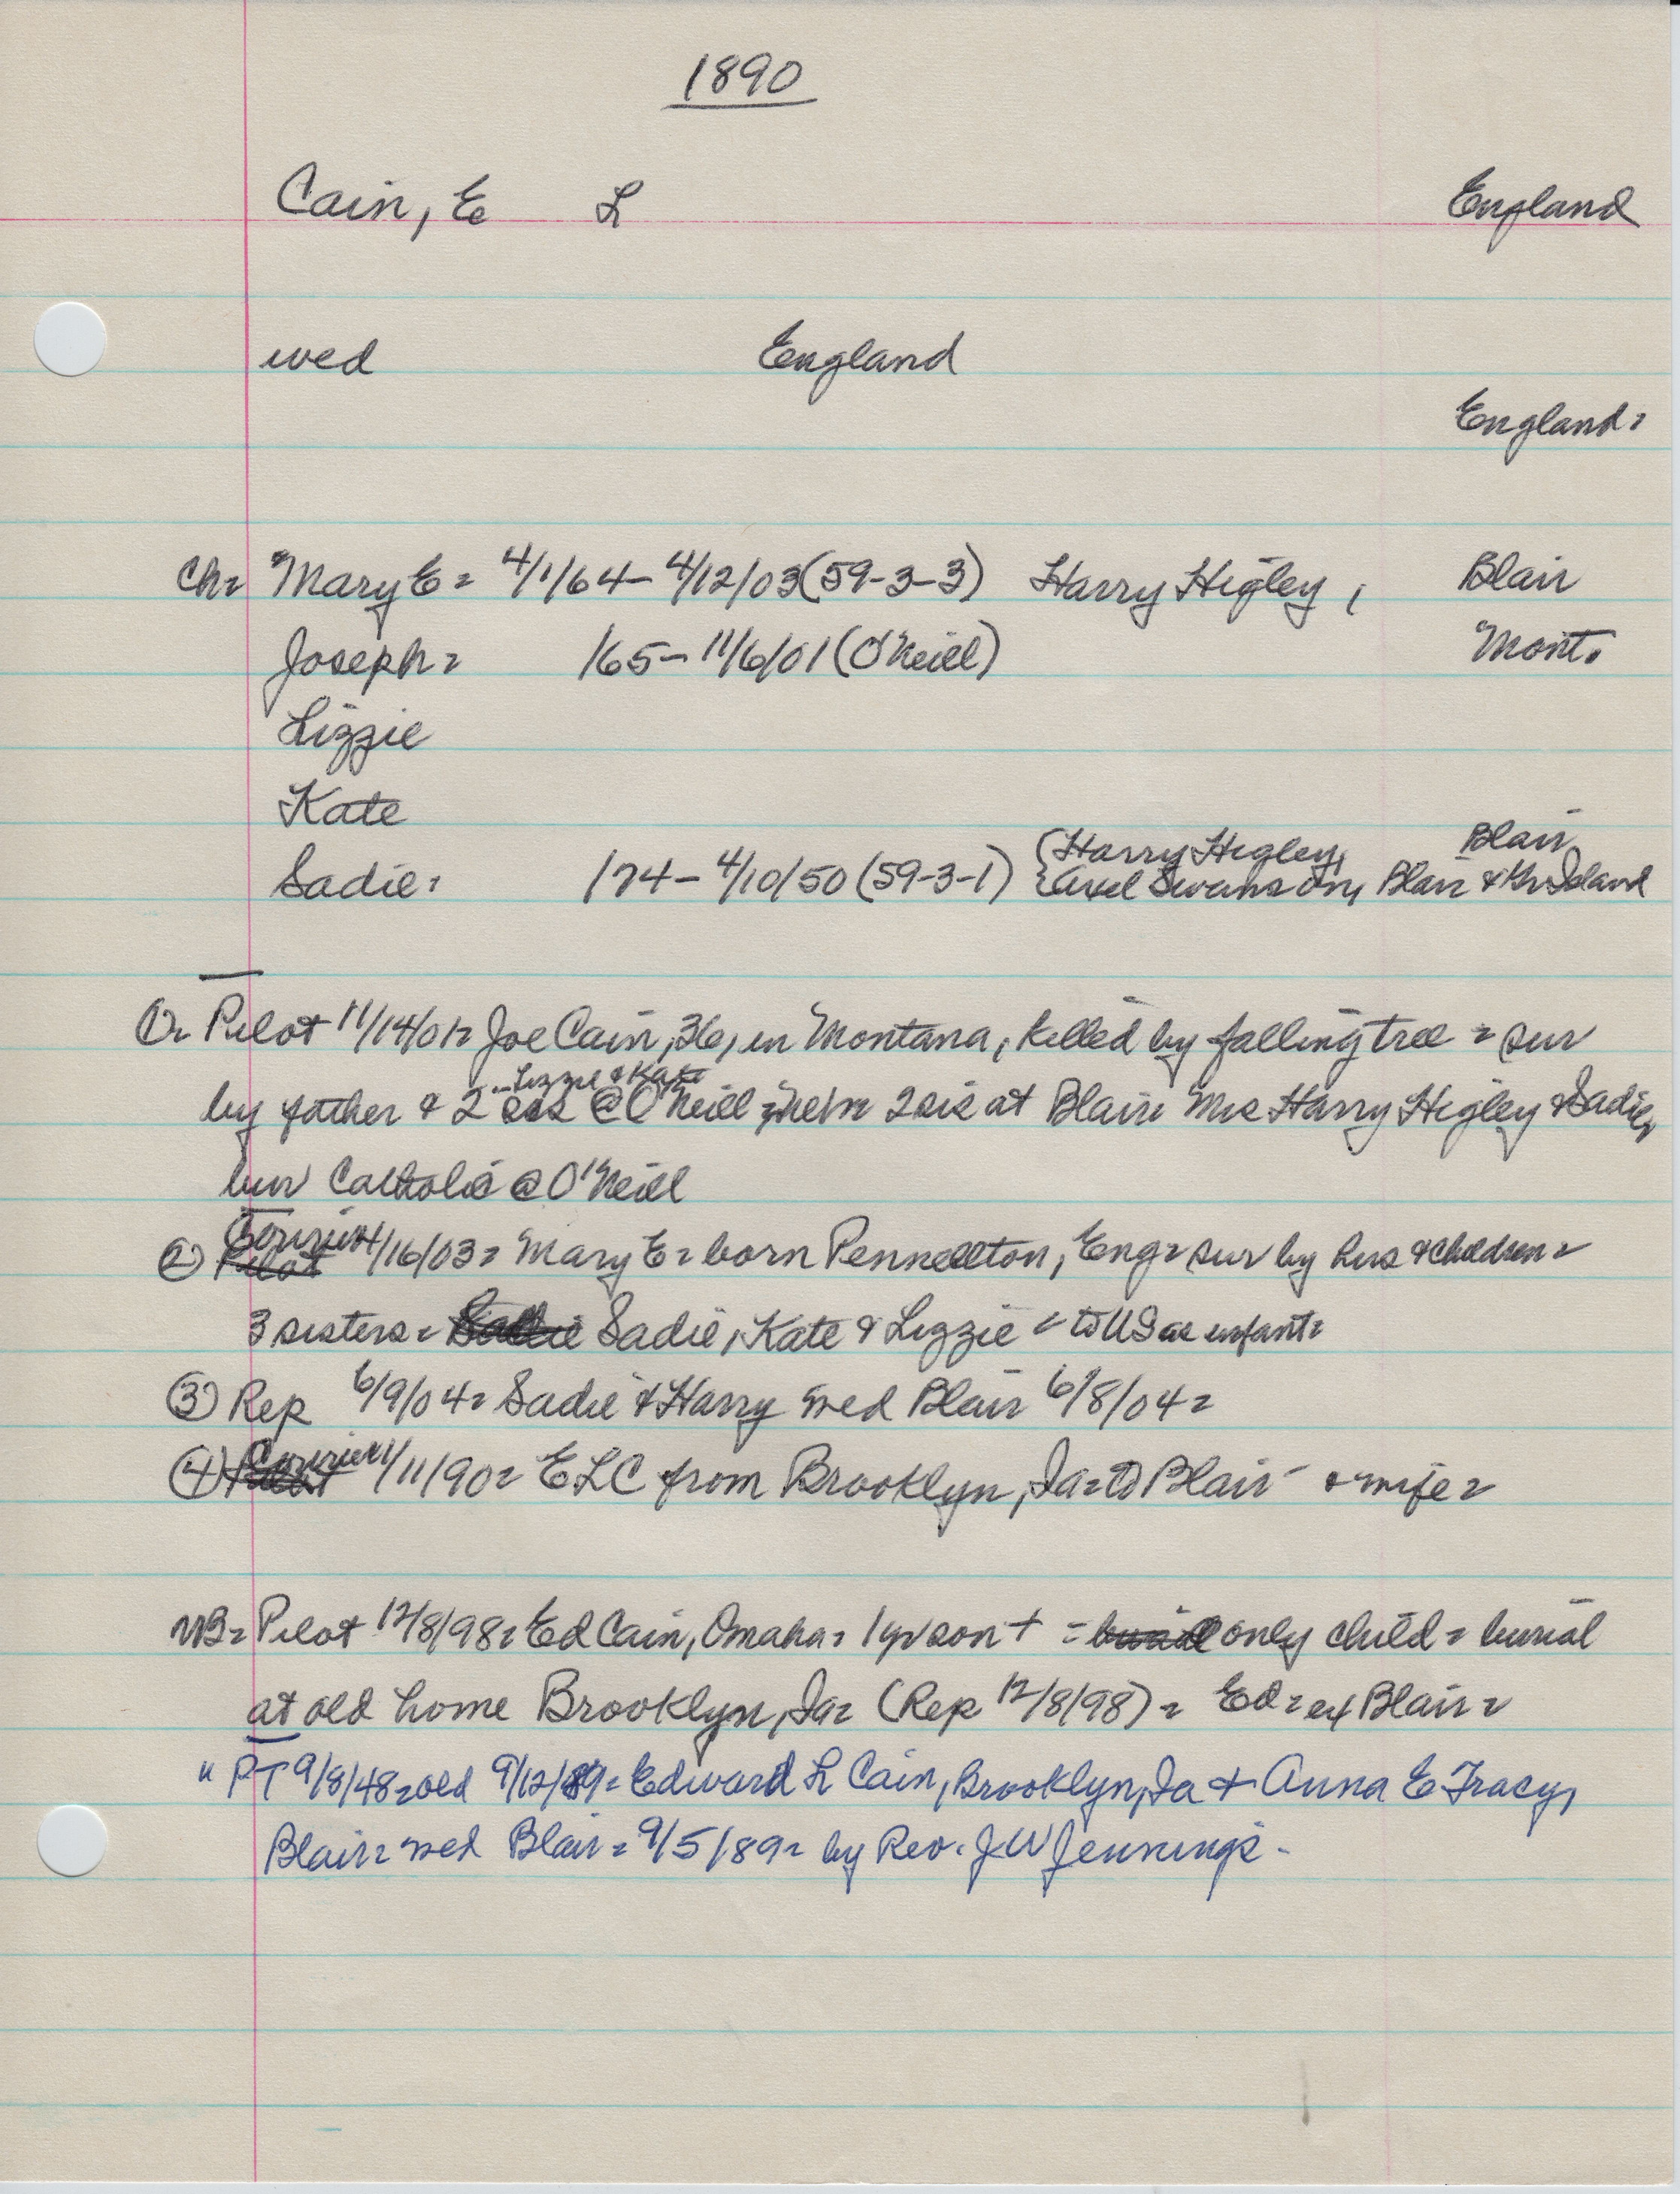 1890
Cain, E L England
wed England
England =
Ch = Mary E = 4/1/64 - 4/12/03 (59-3-3) Harry Higley, Blair
Joseph = /65 - 11/6/01 (O'Neill) Mont.
Lizzie
Kate
Blair
Sadie = /74 - 4/10/50 (59-3-1) {Harry Higley,
Axel Swanson, Blair &
① = Pilot 11/14/01 = Joe Cain, 36, in Montana, killed by falling tree = sur
Lizzie & Kate
by father & 2 sis @ O'Neill 2 sis at Blair Mrs Harry Higley & Sadie,
bur Catholic @ O'Neill
Courier
② Pilot 4/16/03 = Mary E = born Eng = sur by hus & children =
3 sisters = Sadie, Kate & Lizzie = to US as infant =
③ Rep 6/9/04 = Sadie & Harry wed Blair 6/8/04 =
④ Courier 1/11/90 = ELC from Brooklyn, Ia = to Blair & wife =
NB = Pilot 12/8/98 = Ed Cain, Omaha = 1 yr son + = burial only child = burial
at old home Brooklyn, Ia = (Rep 12/8/98) = Ed = ex Blair =
" PT 9/8/48 = old 9/12/89 = Edward L Cain, Brooklyn, Ia + Anna E Tracy,
Blair = wed Blair = 9/5/89 = by Rev. J W Jennings -